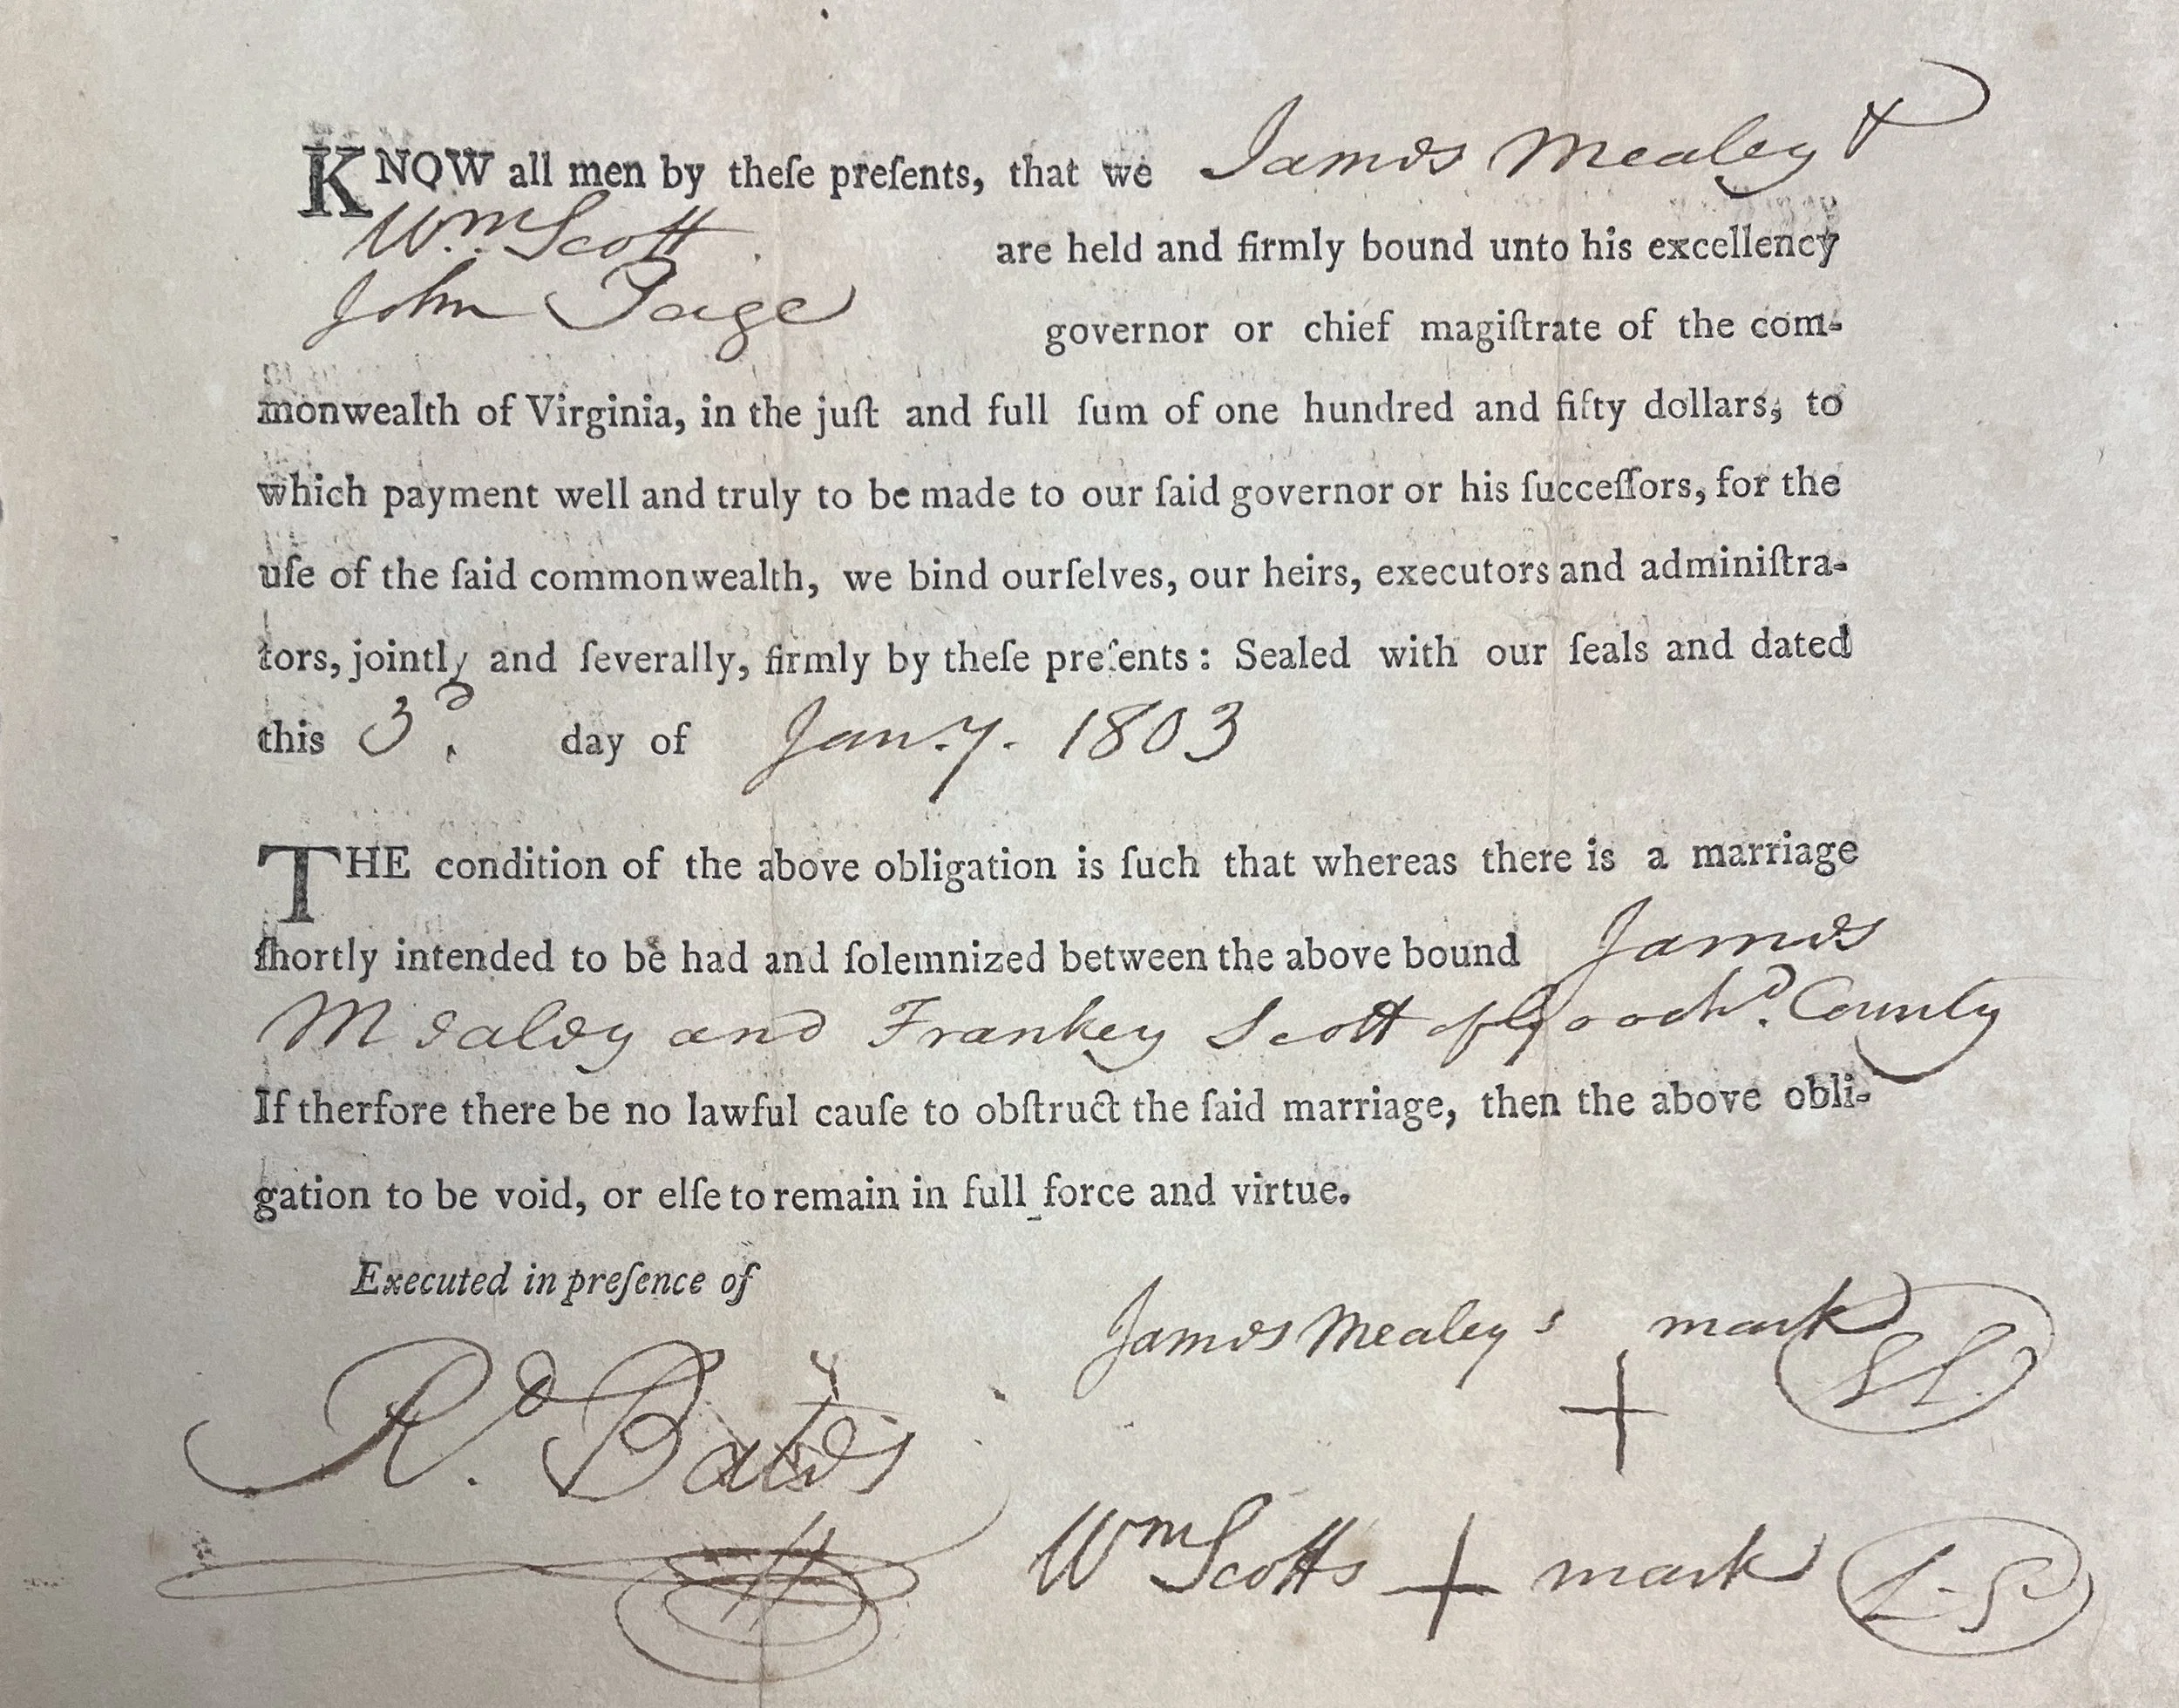 KNOW all men by theſe preſents, that we James Mealey &
Wm. Scott are held and firmly bound unto his excellency
John Page governor or chief magiſtrate of the com-
monwealth of Virginia, in the juſt and full ſum of one hundred and fifty dollars, to
which payment well and truly to be made to our ſaid governor or his ſucceſſors, for the
uſe of the ſaid commonwealth, we bind ourſelves, our heirs, executors and adminiſtra-
tors, jointly and ſeverally, firmly by theſe preſents: Sealed with our ſeals and dated
this 3d. day of Jan.y. 1803
THE condition of the above obligation is ſuch that whereas there is a marriage
ſhortly intended to be had and ſolemnized between the above bound James
Mealey and Frankey Scott of Goochd. County
If therfore there be no lawful cauſe to obſtruct the ſaid marriage, then the above obli-
gation to be void, or elſe to remain in full force and virtue.
Executed in preſence of
James Mealey's + mark
Rd. Bates
Wm Scotts + mark L-S